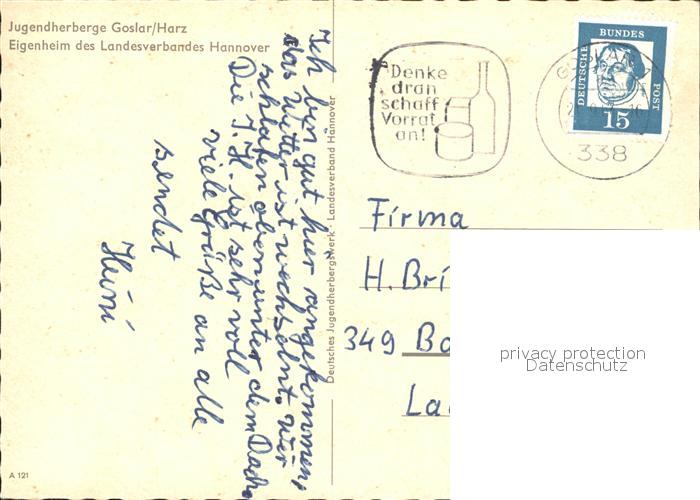 Jugendherberge Goslar/Harz
Eigenheim des Landesverbandes Hannover
Ich bin gut hier angekommen,
das Wetter ist wechselnt, wir
schlafen oben unter dem Dach.
Die J. H. ist sehr voll
viele Grüße an alle
sendet
Heini
A 121
Deutsches Jugendherbergswerk · Landesverband Hannover
Denke
dran
schaff
Vorrat
an!
DEUTSCHE
BUNDES
POST
15
338
Firma
H. Bri
349 Ba
La
privacy protection
Datenschutz